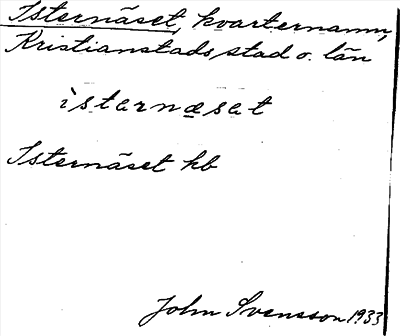 Isternäset, kvarternamn,
Kristianstads stad o. län
ìsternæset
Isternäset kb
John Svensson 1933